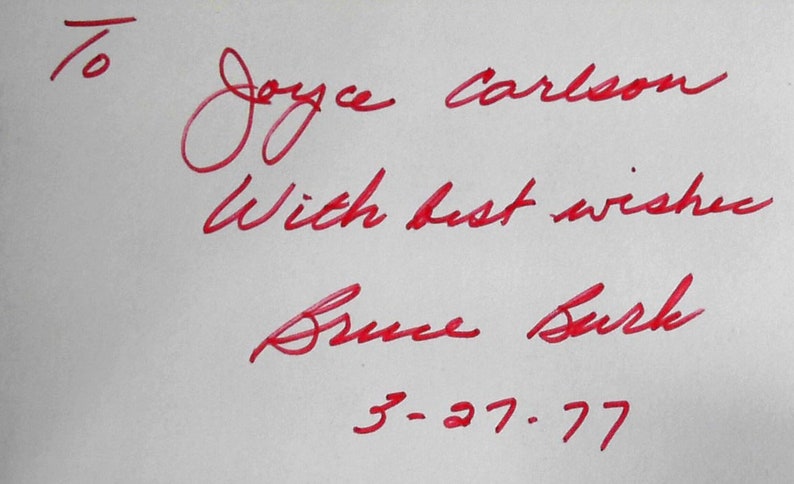 To Joyce Carlson
With best wishes
Bruce Burk
3-27-77